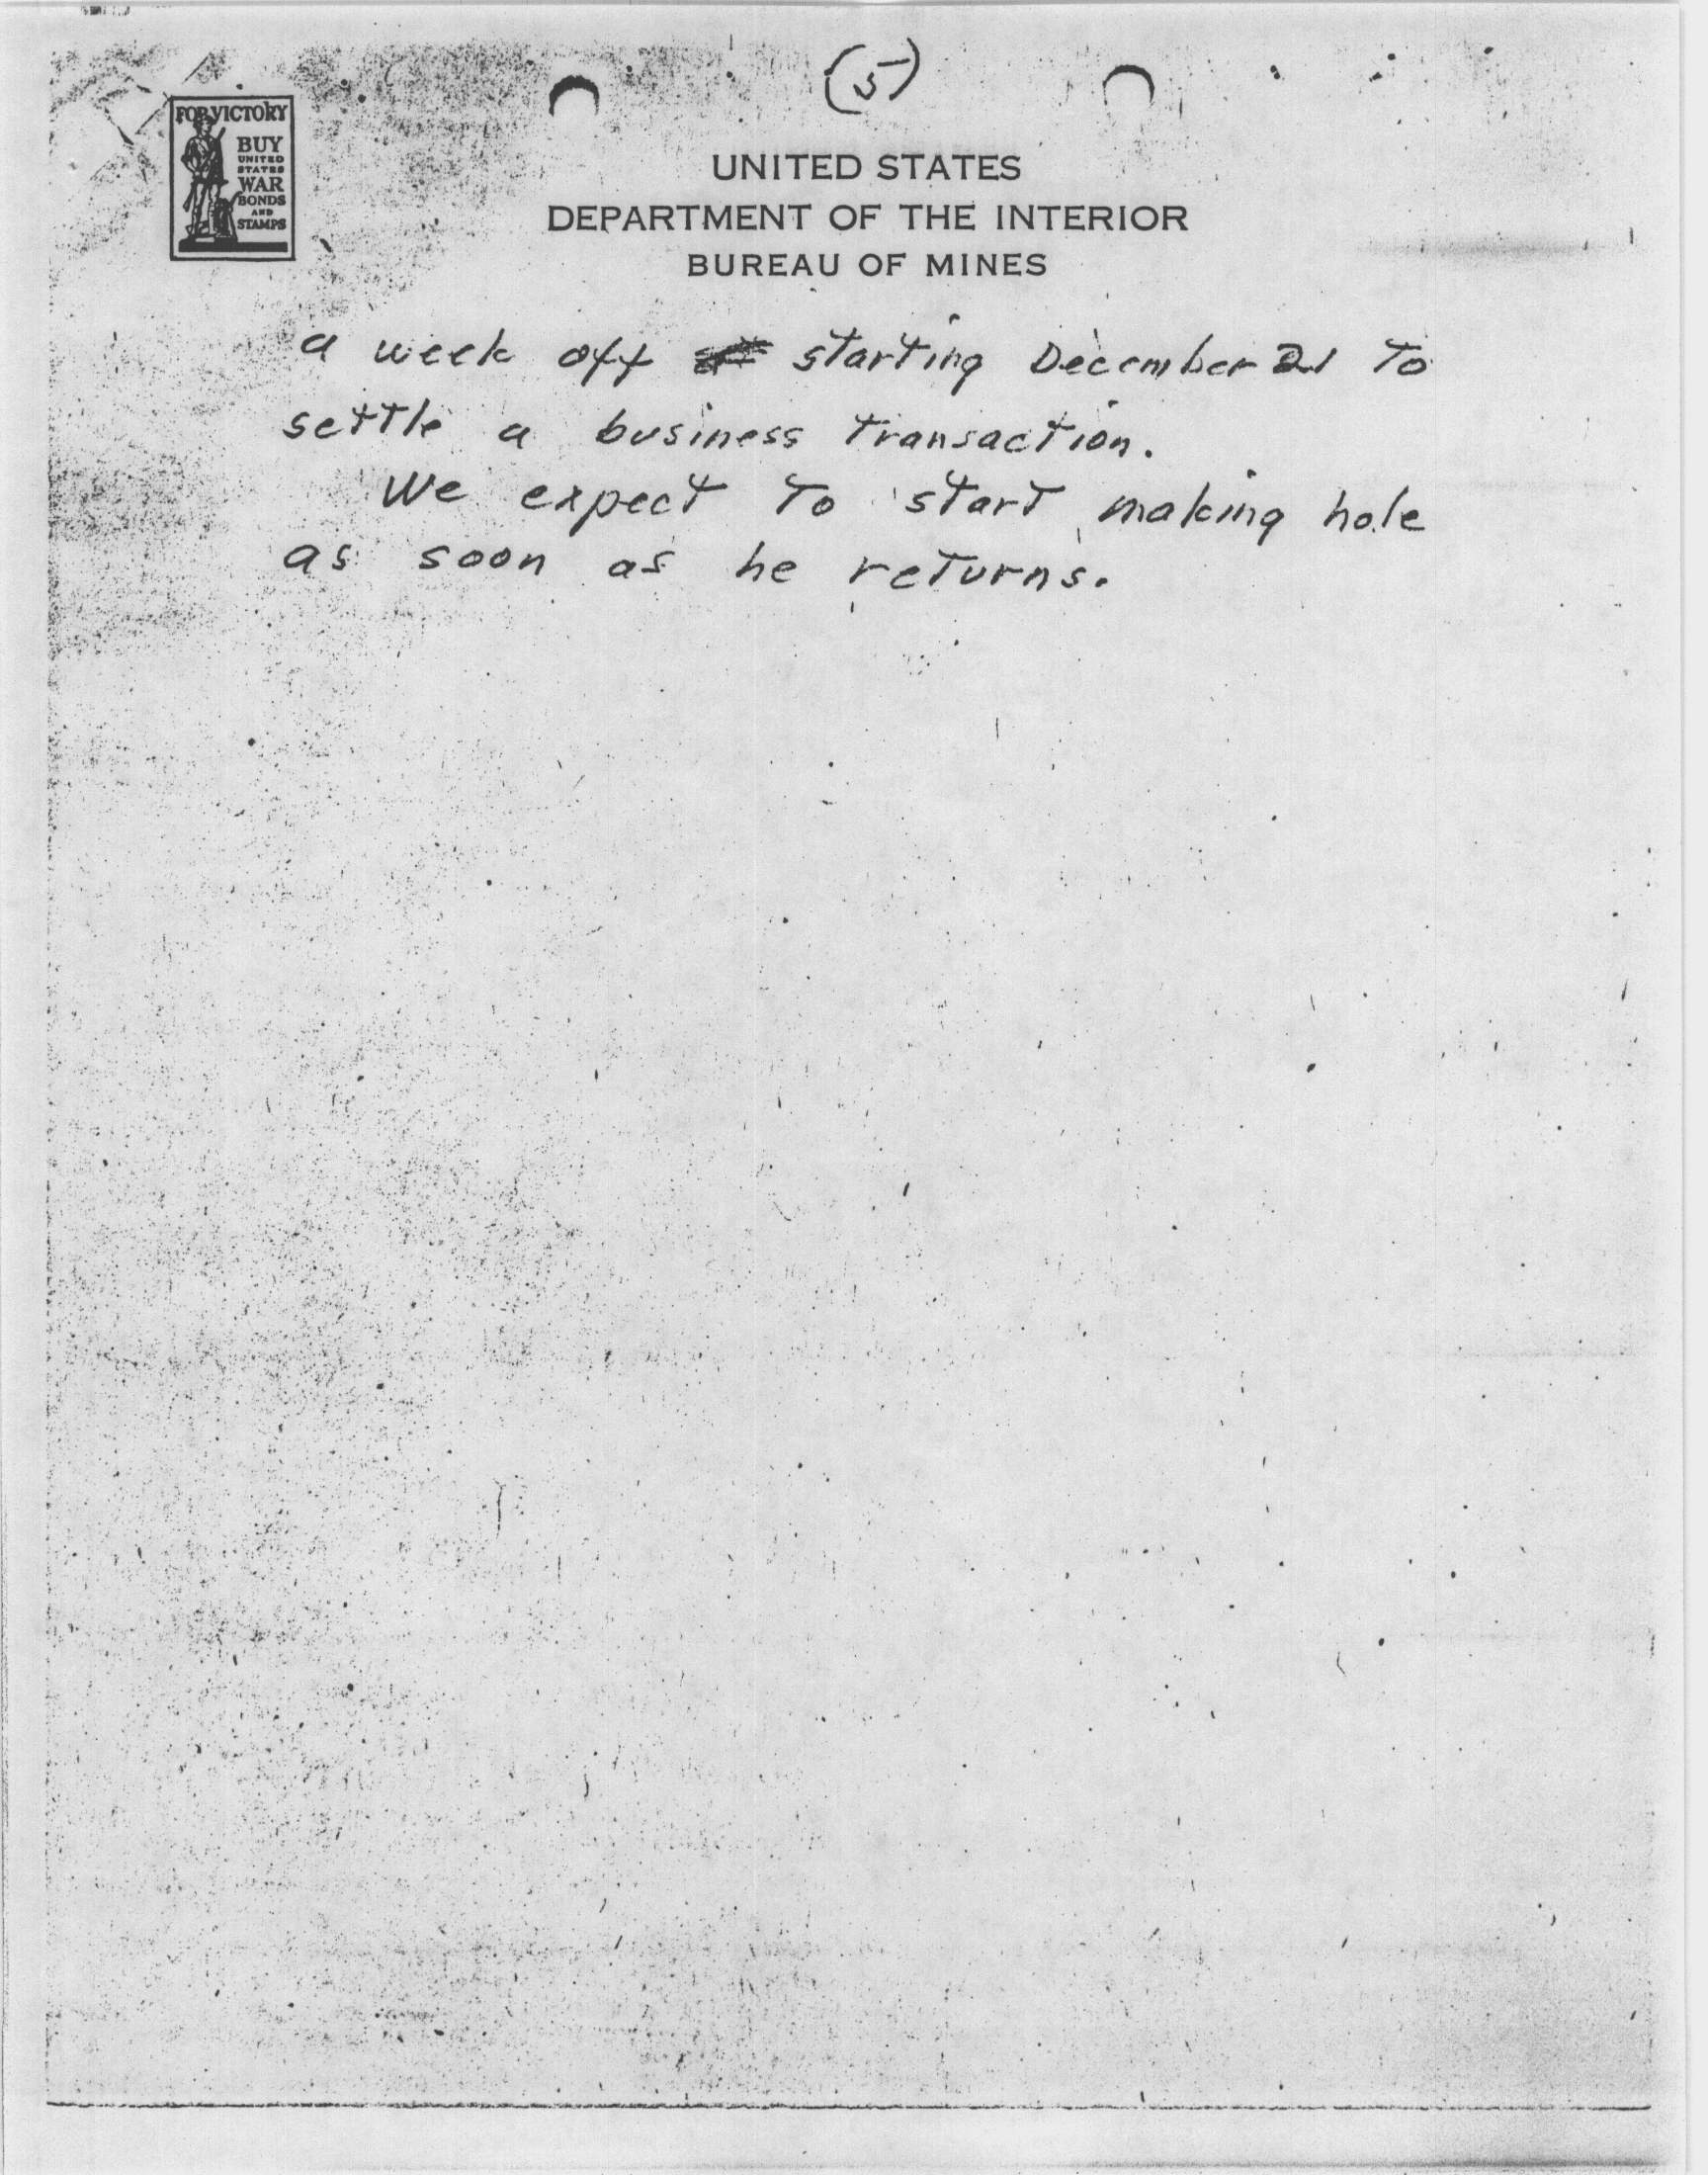 (5)
FOR VICTORY
BUY
UNITED
STATES
WAR
BONDS
AND
STAMPS
UNITED STATES
DEPARTMENT OF THE INTERIOR
BUREAU OF MINES
a week off starting December 21 to
settle a business transaction.
We expect to start making hole
as soon as he returns.